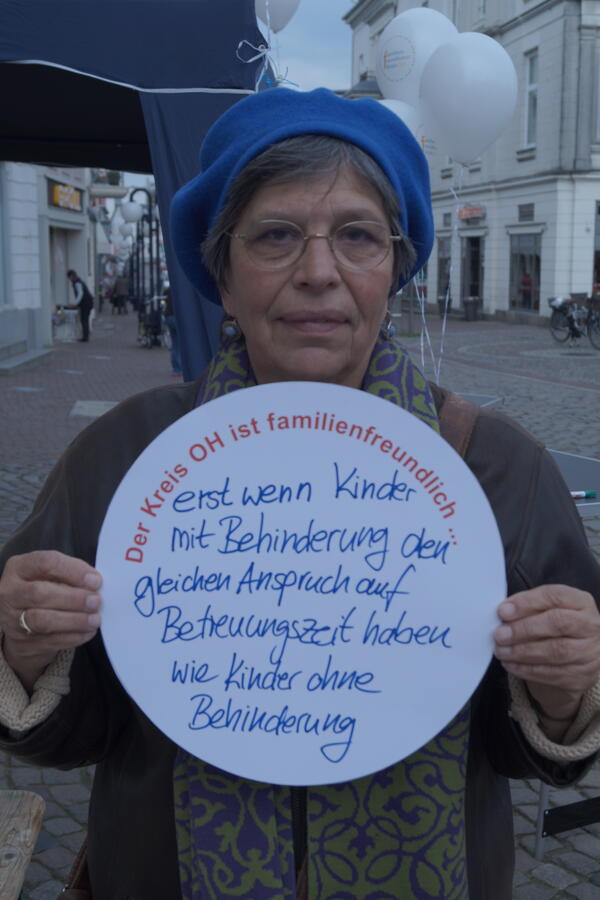 Der Kreis OH ist familienfreundlich ...
erst wenn Kinder
mit Behinderung den
gleichen Anspruch auf
Betreuungszeit haben
wie Kinder ohne
Behinderung